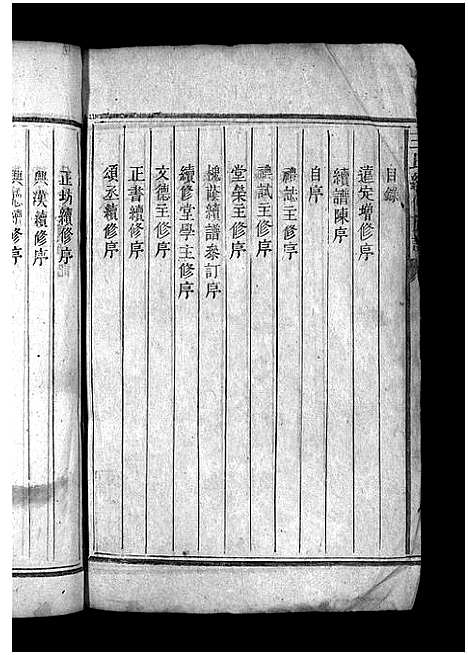 目錄
蘧定增修序
續譜陳序
自序
禮誌主修序
禮試主修序
堂榮主修序
槐蔭續譜叅訂序
續修堂學主修序
文德主修序
正書續修序
頌丞續修序
正坊續修序
興漢續修序